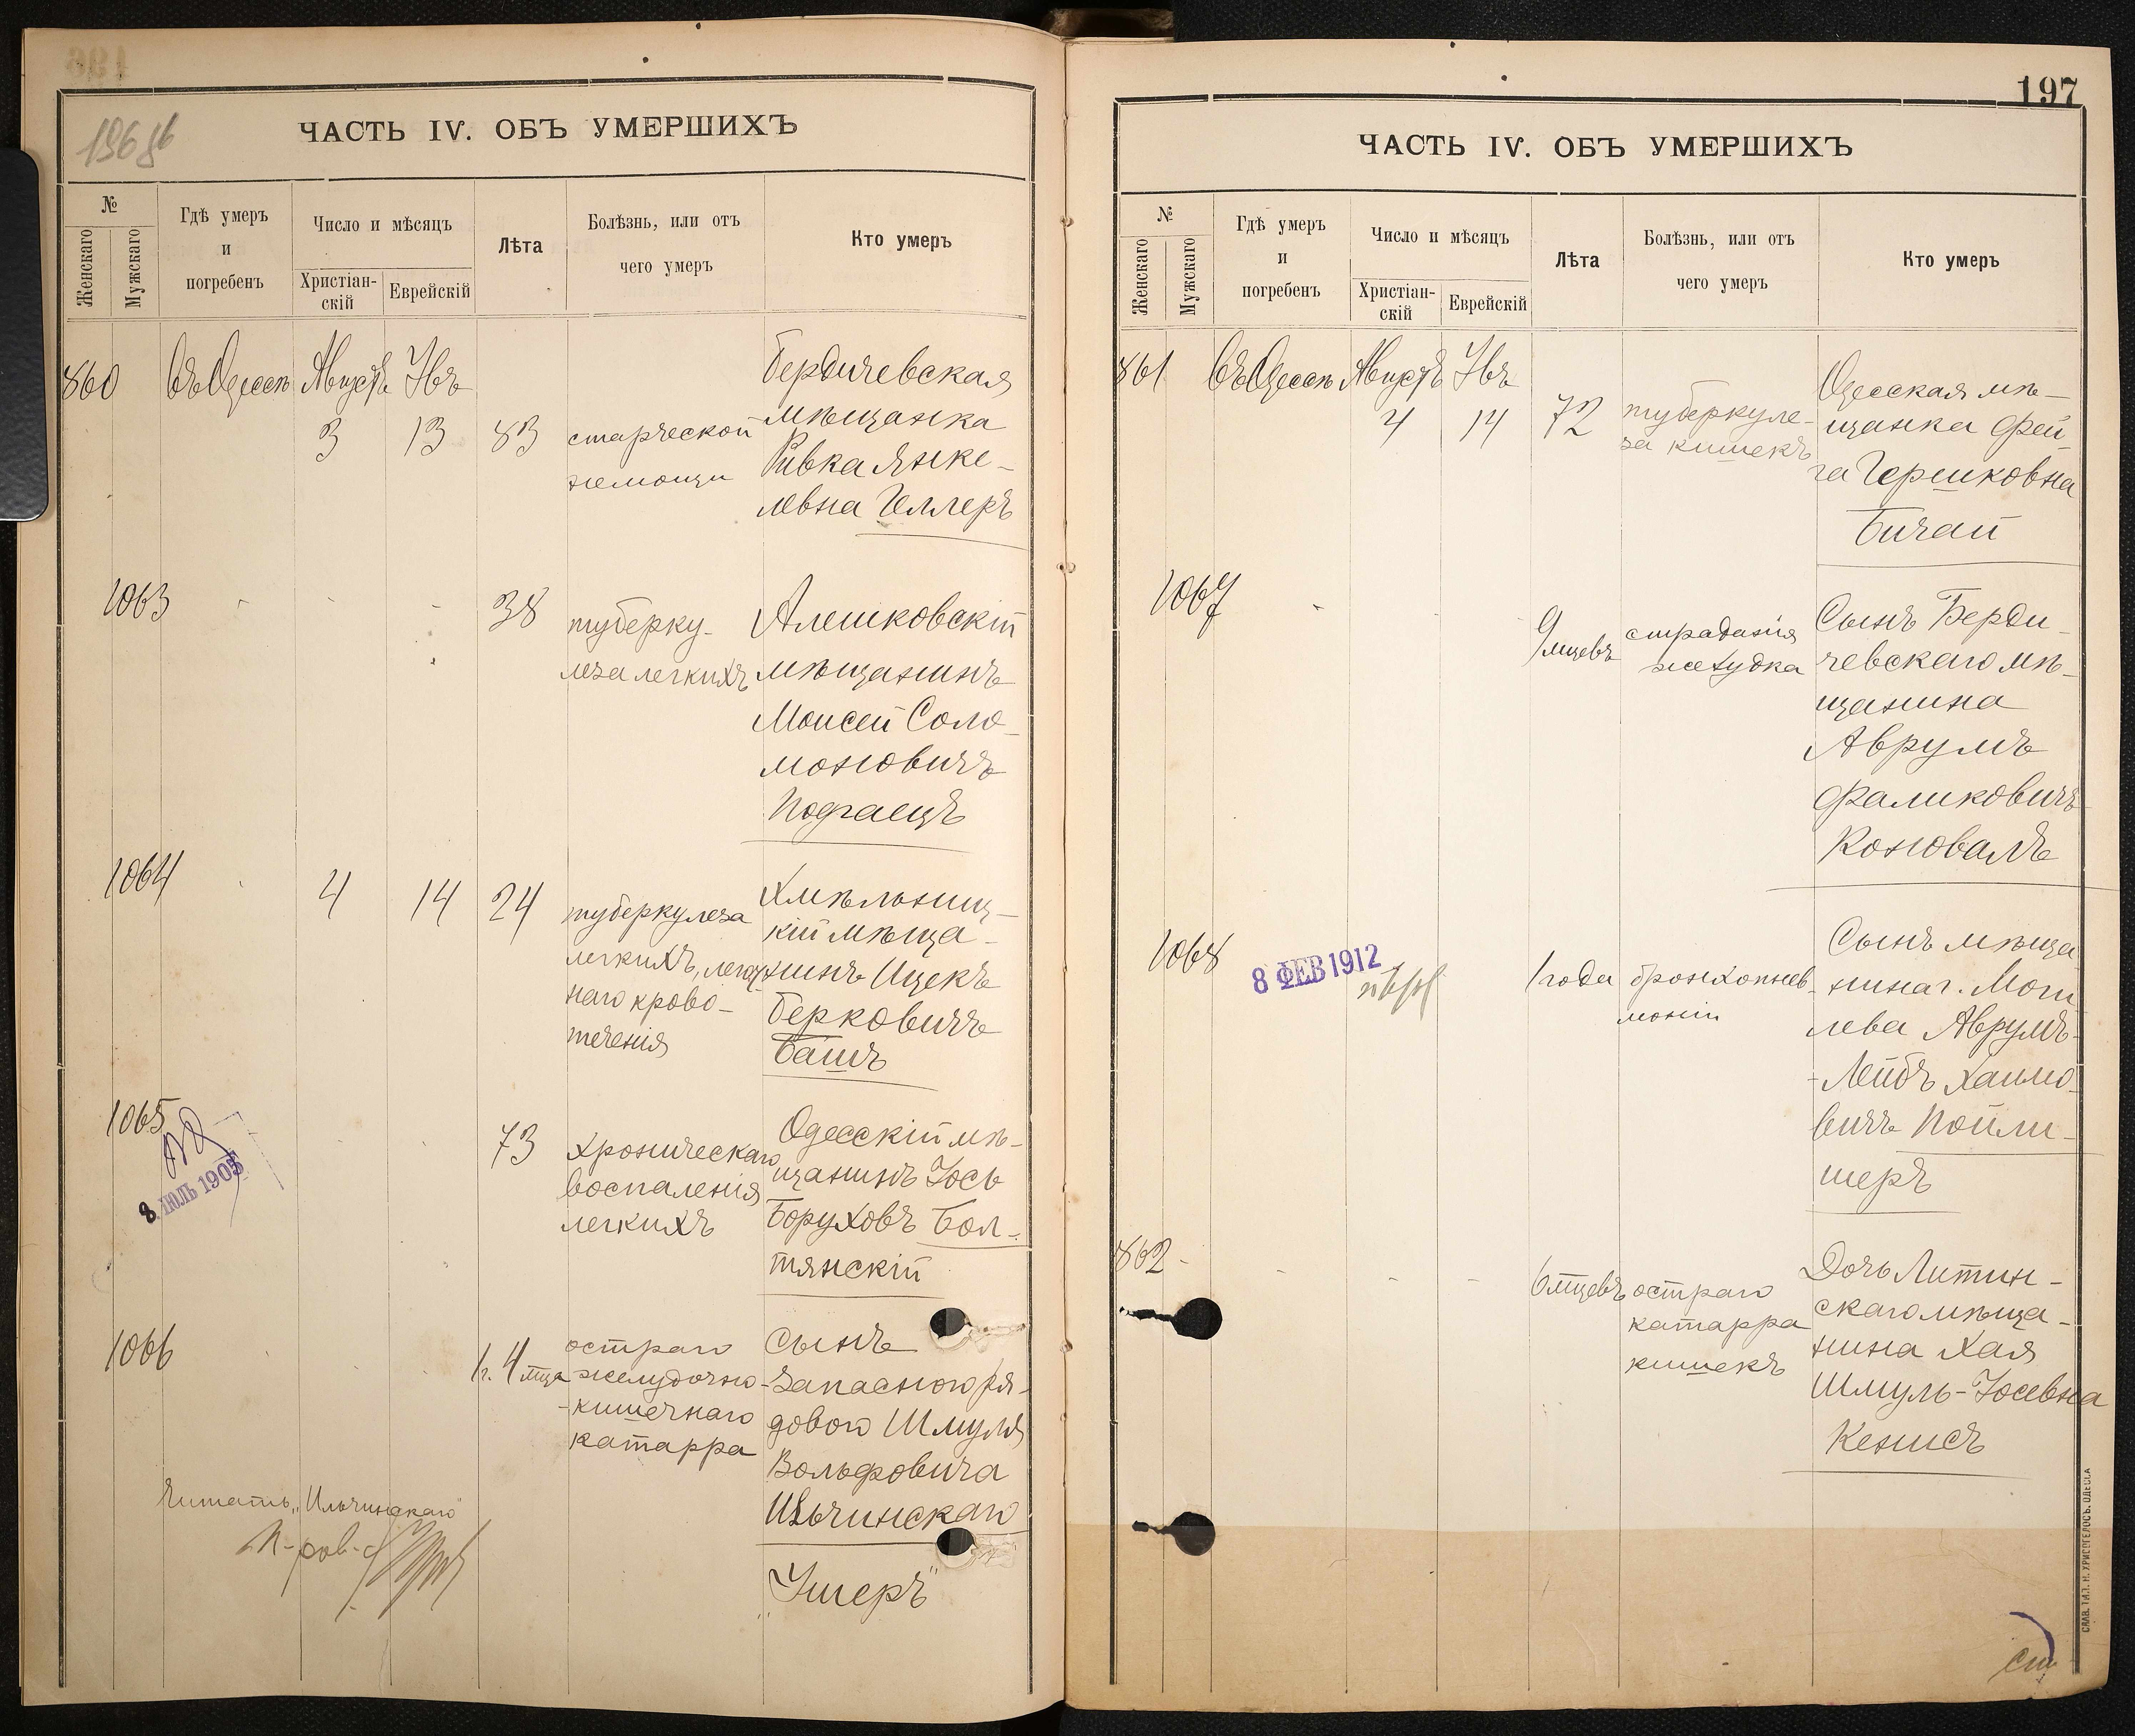 ЧАСТЬ IV. ОБЪ УМЕРШИХЪ
№
Женскаго
Мужскаго
Гдѣ умеръ
и
погребенъ
Число и мѣсяцъ
Христіан-
скій
Еврейскій
Лѣта
Болѣзнь, или отъ
чего умеръ
Кто умеръ
860
въ Одессѣ
Августъ
3
Увъ
13
83
старческой
немощи
Бердичевская
мѣщанка
Ривка Янке-
левна Геллеръ
1063
38
туберку-
леза легкихъ
Алешковскій
мѣщанинъ
Моисей Соло-
моновичъ
Подгаецъ
1064
4
14
24
туберкулеза
легкихъ, легоч
наго крово-
теченія
Хмѣльниц-
кій мѣща-
нинъ Ицекъ
Берковичъ
Башъ
1065
8 ІЮЛЬ 1905
73
хроническаго
воспаленія
легкихъ
Одесскій мѣ-
щанинъ Іось
Боруховъ Бол-
тянскій
1066
1 г. 4 мца
остраго
желудочно-
-кишечнаго
катарра
Сынъ
запасного ря-
дового Шмуля
Вольфовича
Ильчинскаго
"Ушеръ"
Читать "Ильчинскаго"
197
ЧАСТЬ IV. ОБЪ УМЕРШИХЪ
№
Женскаго
Мужскаго
Гдѣ умеръ
и
погребенъ
Число и мѣсяцъ
Христіан-
скій
Еврейскій
Лѣта
Болѣзнь, или отъ
чего умеръ
Кто умеръ
861
въ Одессѣ
Августъ
4
Увъ
14
72
туберкуле-
за кишекъ
Одесская мѣ-
щанка Фей
га Гершковна
Бичай
1067
9 мцевъ
страданія
желудка
Сынъ Берди-
чевскаго мѣ-
щанина
Аврумъ
Фаликовичъ
Коновалъ
1068
8 ФЕВ 1912
1 года
бронхопнев-
моніи
Сынъ мѣща
нина г. Моги
лева Аврумъ-
-Лейбъ Хаимо-
вичъ Пойли-
шеръ
862
6 мцевъ
остраго
катарра
кишекъ
Дочь Литин-
скаго мѣща-
нина Хая
Шмуль-Іосевна
Кенисъ
СЛАВ. ТИП. Н. ХРИСОГЕЛОСЪ. ОДЕССА